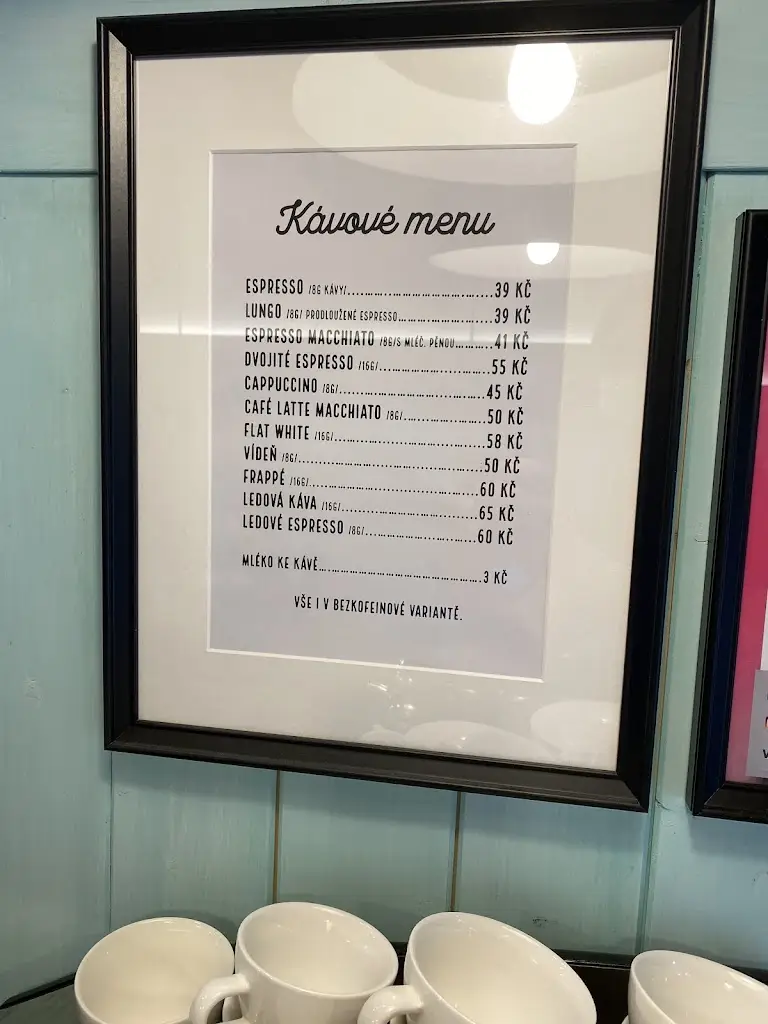 Kávové menu
ESPRESSO /8G KÁVY/ 39 KČ
LUNGO /8G/ PRODLOUŽENÉ ESPRESSO 39 KČ
ESPRESSO MACCHIATO /8G/S MLÉČ. PĚNOU 41 KČ
DVOJITÉ ESPRESSO /16G/ 55 KČ
CAPPUCCINO /8G/ 45 KČ
CAFÉ LATTE MACCHIATO /8G/ 50 KČ
FLAT WHITE /16G/ 58 KČ
VÍDEŇ /8G/ 50 KČ
FRAPPÉ /16G/ 60 KČ
LEDOVÁ KÁVA /16G/ 65 KČ
LEDOVÉ ESPRESSO /8G/ 60 KČ
MLÉKO KE KÁVĚ 3 KČ
VŠE I V BEZKOFEINOVÉ VARIANTĚ.